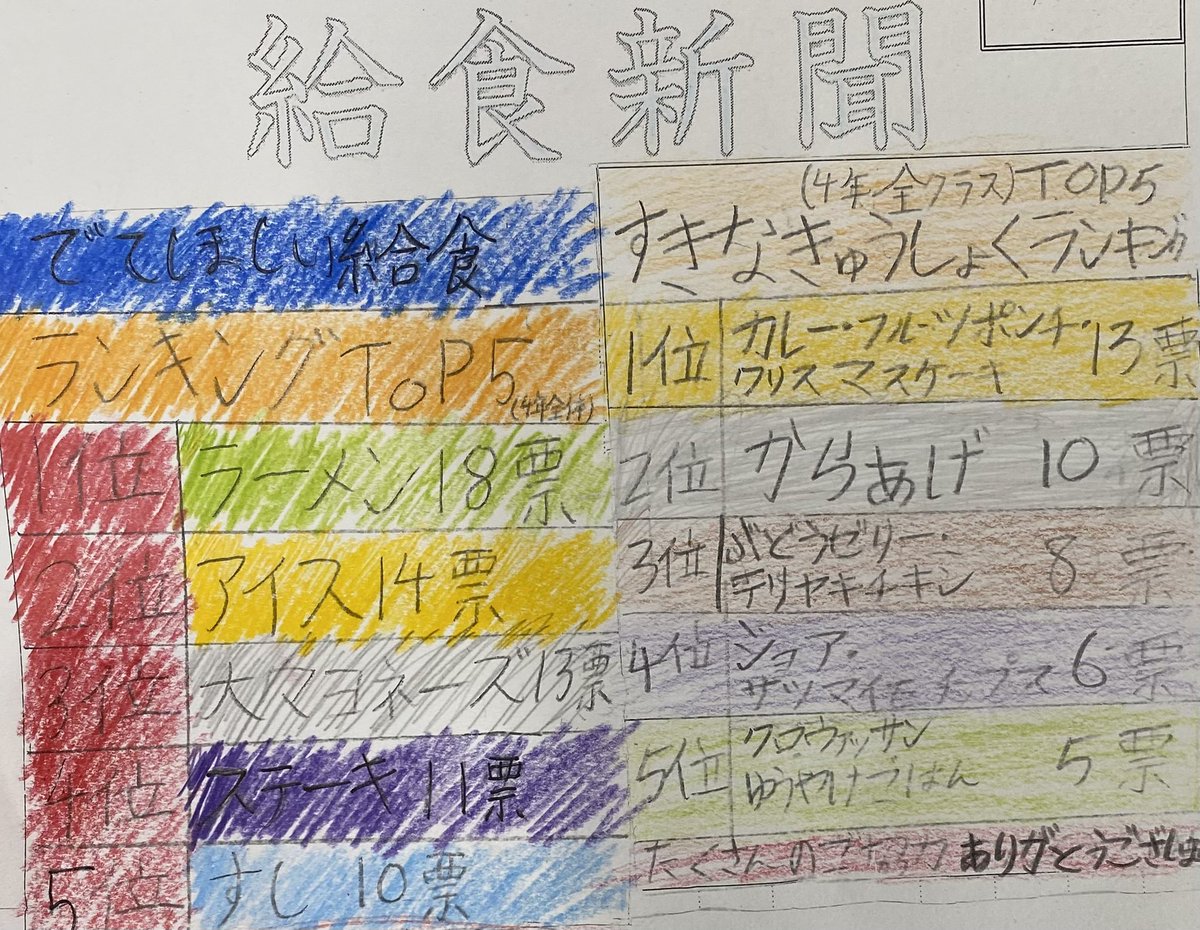 給食新聞
でてほしい給食
ランキングTOP5
(4年全体)
1位 ラーメン18票
2位 アイス14票
3位 大マヨネーズ13票
4位 ステーキ11票
5位 すし10票
(4年全クラス)TOP5
すきなきゅうしょくランキング
1位 カレー・フルーツポンチ・
クリスマスケーキ 13票
2位 からあげ 10票
3位 ぶどうゼリー・
テリヤキチキン 8票
4位 ジョア・
サツマイモチップス 6票
5位 クロワッサン
ゆうやけごはん 5票
たくさんのご協力 ありがとうござい